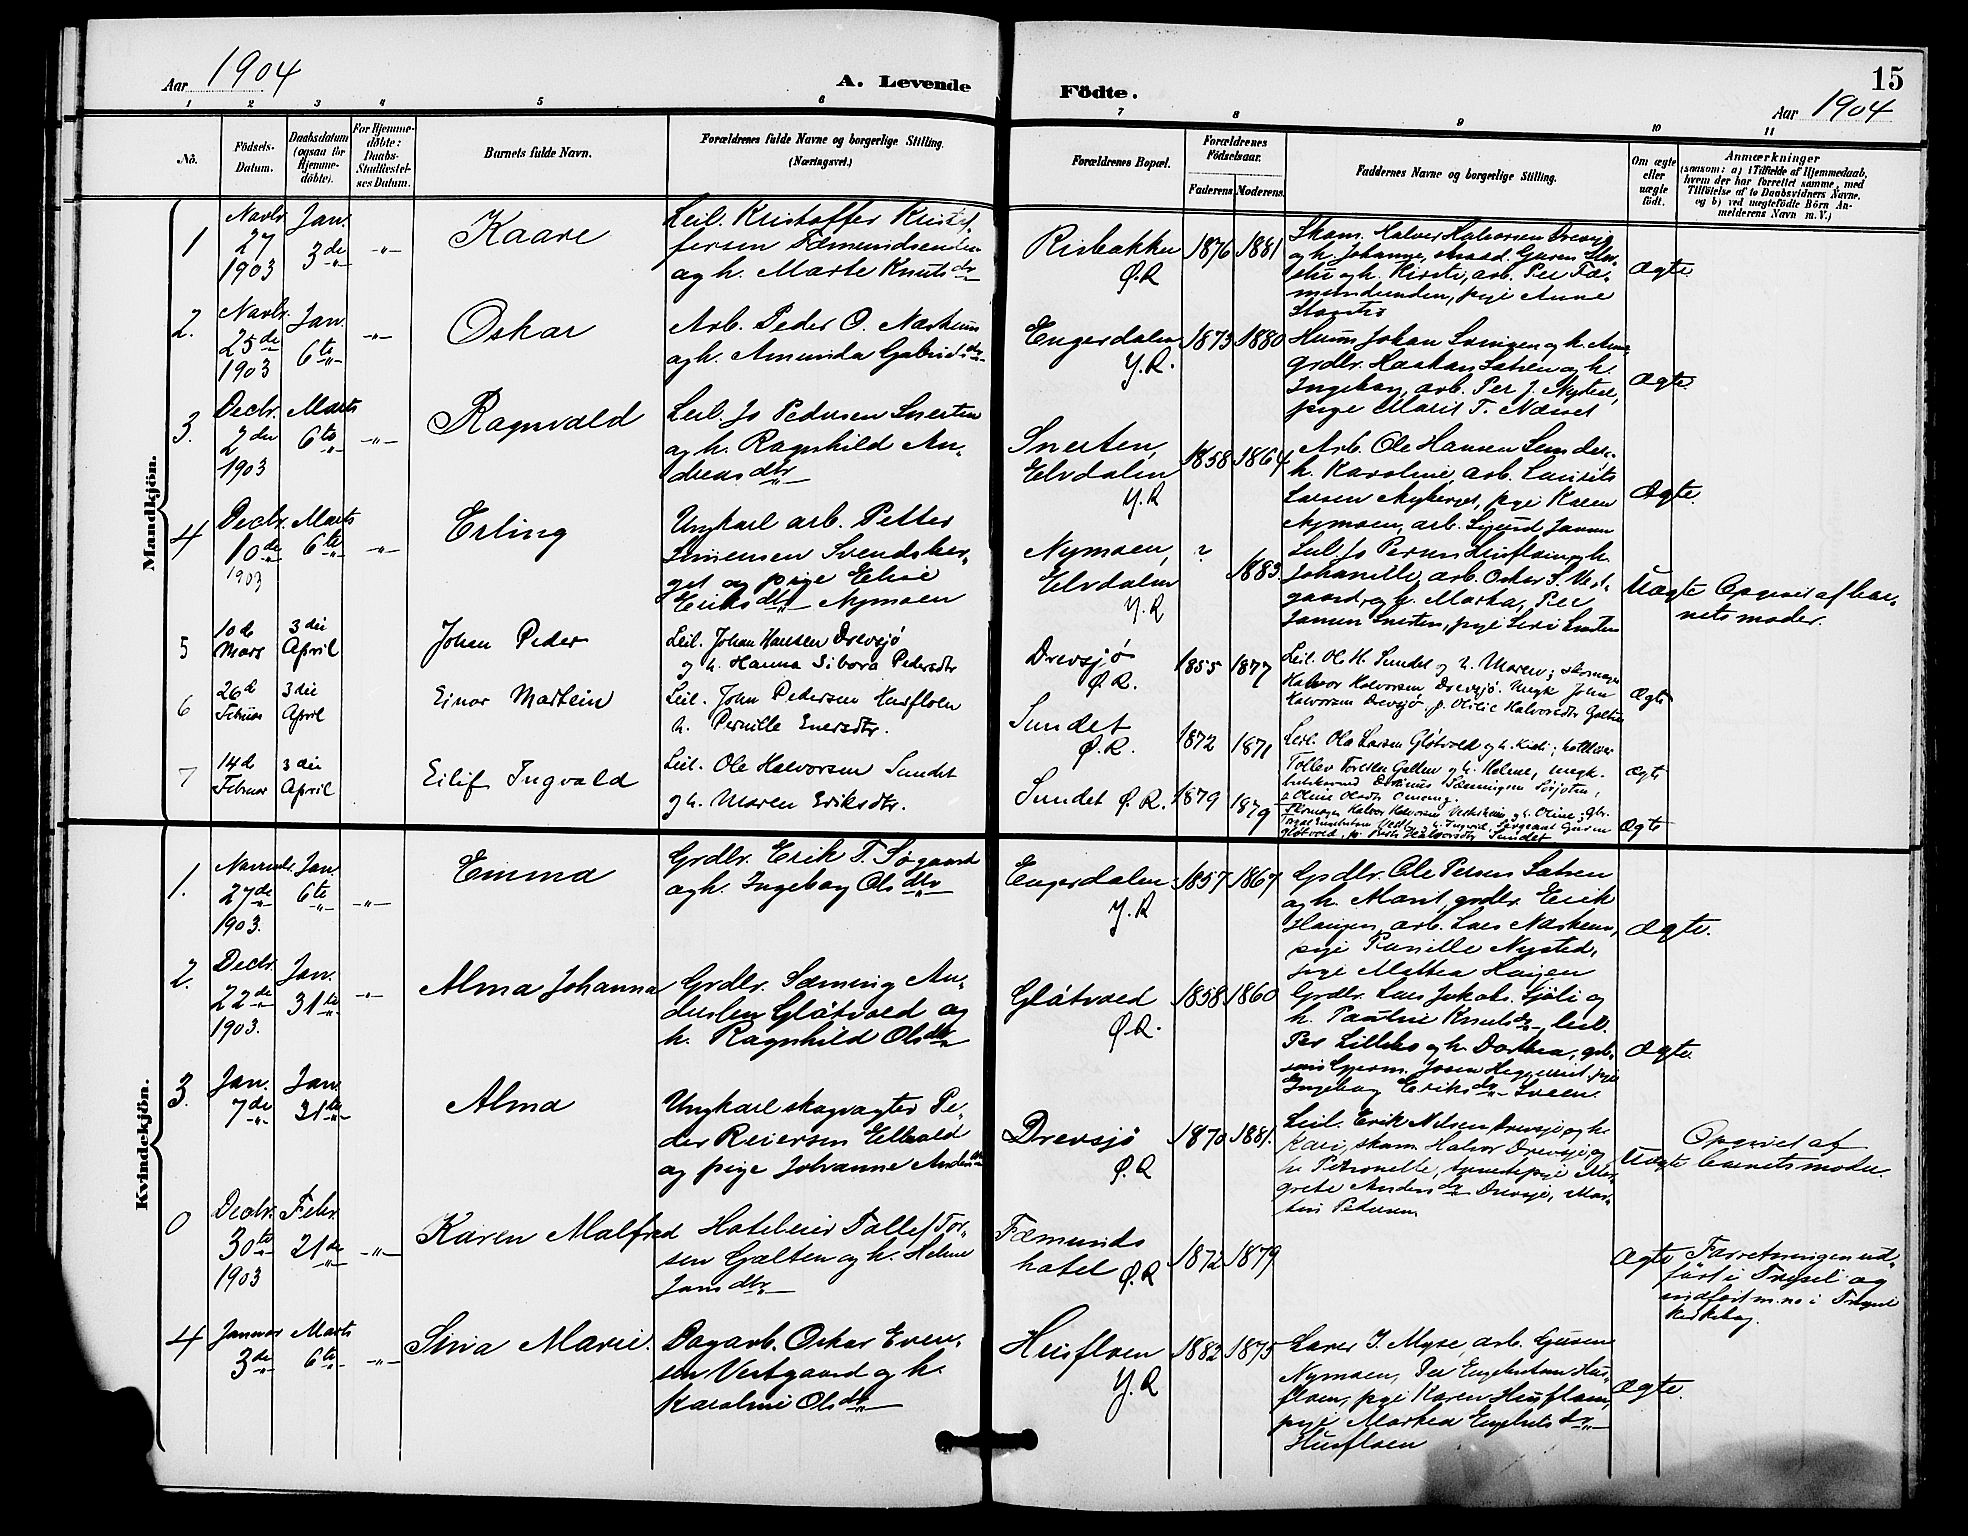 Aar 1904
A. Levende Födte.
15
Aar 1904
1 2 3 4 5 6 7 8 9 10 11
No.
Födsels-
Datum.
Daabsdatum
(ogsaa for
Hjemme-
döbte).
For Hjemme-
döbte:
Daabs-
Stadfæstel-
ses Datum.
Barnets fulde Navn.
Forældrenes fulde Navne og borgerlige Stilling.
(Næringsvei.)
Forældrenes Bopæl.
Forældrenes
Födselsaar.
Faderens Moderens
Faddernes Navne og borgerlige Stilling.
Om ægte
eller
uægte
födt.
Anmærkninger
(saasom: a) i Tilfælde af Hjemmedaab,
hvem der har forrettet samme, med
Tilföielse af to Daabsvidners Navne.
og b) ved uægtefödte Börn An-
melderens Navn m. V.)
Mandkjön.
1
Novbr.
27
1903
Jan.
3de
Kaare
Leil. Kristoffer Kristof-
fersen Fæmundsenden
og h. Marte Knutsdr
Risbakken
Ø.R
1876 1881
Skom. Halvor Halvorsen Drevsjø
og h. Johanne,
og h. Kirsti, arb. Per Fæ-
mundsenden, pige Anne
Ægte
2.
Novbr.
25de
1903
Jan.
6te
Oskar
Arb. Peder O. Narhuus
og h. Amunda Gabrielsdr
Engerdalen
Y.R.
1873 1880
Huusm. Johan og h. Anne
grdbr. Haakan Sætren og h.
Ingebor, arb. Per J. Nysted,
pige Marit T.
Ægte.
3.
Decbr.
2den
1903
Marts
6te
Ragnvald
Leil. Jo Pedersen Snerten
og h. Ragnhild An-
dreasdtr
Snerten,
Elvdalen
Y.R
1858 1864
Arb. Ole Hansen
h. Karoline, arb. Laurits
Larsen Nyberget, pige Karen
Nymoen, arb. Sigurd Jansen
Ægte.
4
Decbr.
10de
1903
Marts
6te
Erling
Ungkarl arb. Petter
Simensen Svendsber-
get og pige Elise
Eriksdtr Nymoen
Nymoen,
Elvdalen
Y.R
? 1883.
Leil. Jo Persen Husfloen og h.
Johanille, arb. Oskar E. Vest-
gaard og h. Marka, Per
Jansen Snerten, pige Siri Snerten
Uægte
Opgivet af bar-
nets moder.
5
10de
Mars
3die
April
Johan Peder
Leil. Johan Hansen Drevsjø
og h. Hanna Sibora Pedersdtr
Drevsjø
Ø.R.
1855 1877
Leil. Ole H. Sundet og h. Maren; skomager
Halvor Halvorsen, Drevsjø. Ungk. John
Halvorsen Drevsjø, p. Olilie Halvorsdtr Galten
Ægte
6
26de
Februar
3die
April
Einar Martein
Leil. John Pedersen Husfloen
h. Pernille Enersdtr.
Sundet
Ø.R.
1872 1871
Leil. Ole Larsen Gløtvold og h. Kirsti; hoteleier
Tollev Toresen Galten og h. Helene, ungk.
p. Oline Olsdtr
Ægte
7
14de
Februar
3die
April
Eilif Ingvald
Leil. Ole Halvorsen Sundet
og h. Maren Eriksdtr.
Sundet Ø.R.
1879 1879
Skomager Halvor Halvorsen og h. Oline; Gbr.
Gløtvold, p. Halvorsdtr Sundet
Ægte
Kvindekjön.
1.
Novembr.
27de
1903.
Jan.
6te
Emma
Grdbr. Erik T. Søgaard
og h. Ingebor Olsdtr
Engerdalen
Y.R
1857 1867
Grdbr. Ole Persen Sætren
og h. Marit, grdbr. Erik
Haugen, arb. Lars Narhuus,
pige Pernille Nysted,
pige Mattea Haugen
Ægte.
2.
Decbr.
22de
1903.
Jan.
31te
Alma Johanna
Grdbr. Sæming An-
dersen Gløtvoed og
h. Ragnhild Olsdtr
Gløtvoed
Ø.R.
1858 1860
Grdbr. Lars Jakobs. Sjøli og
h. Pauline Knutsdr, leil.
Per Lillebo og h. Dorthea, gbr.
Ingebor Eriksdr Sveen.
Ægte.
3.
Jan.
7de
Jan.
31te
Alma
Ungkarl skogvogter Pe-
der Reiersen Elvold
og pige Johanne Andersdtr
Drevsjø
Ø.R
1870 1881.
Leil. Erik Nilsen Drevsjø og h.
Kari, skom. Halvor Drevsjø og
h. Petronelle, tjenestepige Mar-
grete Andersdr Drevsjø, Mar-
tin Pedersen
Uægte
Opgivet af
barnets moder.
0
Decbr.
30te
1903
Febr.
21de
Karen Malfred
Hoteleier Tollef Tor-
sen Galten og h. Helene
Jansdtr
Fæmunds
hotel Ø.R
1872 1879
Ægte
Forretningen ud-
ført i Trysil og
indført m. no i Trysil
kirkebog.
4
Januar
3de
Marts
6te
Sina Marie.
Dagarb. Oskar Even-
sen Vestgaard og h.
Karoline Olsdtr
Husfloen
Y.R
1882 1875
Laver J. Myse, arb. Guren
Nymoen, Per Engebretsen Hus-
floen, pige Karen Husfloen,
pige Marthea Engebretsdr
Husfloen
Ægte.